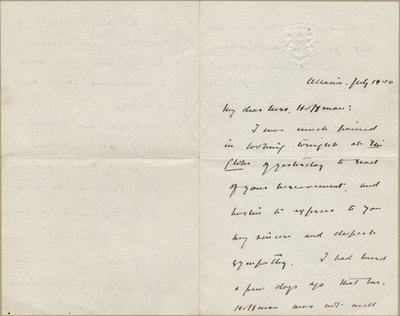 Ottawa. July 14-10
My dear Mrs. Hoffman:
I was much pained
in looking tonight at The
Globe of yesterday to read
of your bereavement, and
hasten to express to you
my sincere and deepest
sympathy. I had heard
a few days ago that Mr.
Hoffman was not well